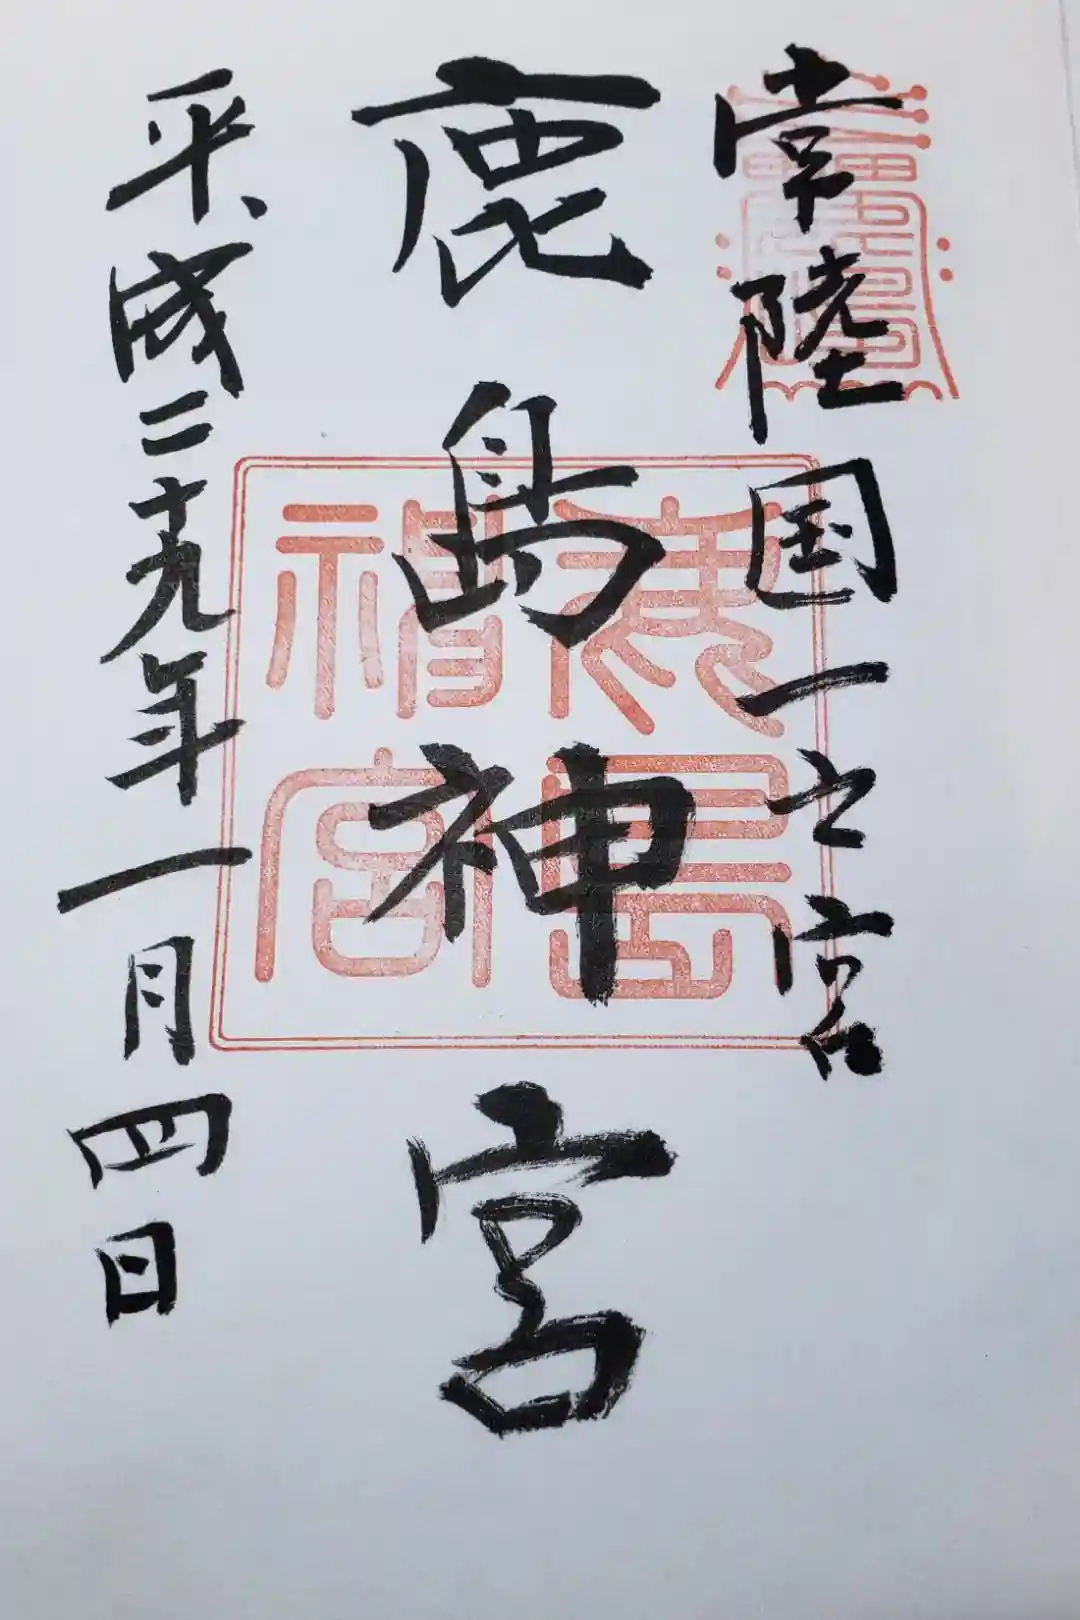 常陸国一之宮
鹿島神宮
平成二十九年一月四日
鹿島
神宮